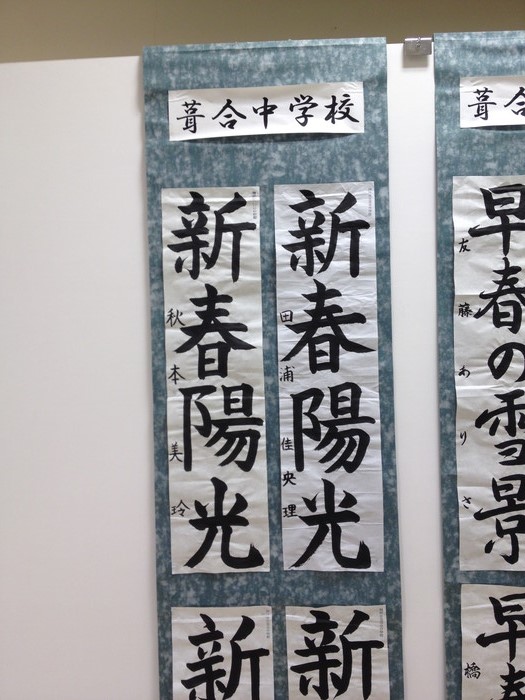 葺合中学校
新春陽光
田浦佳央理
新春陽光
秋本美玲
新
新
葺合
早春の雪景
友藤ありさ
早春
橘